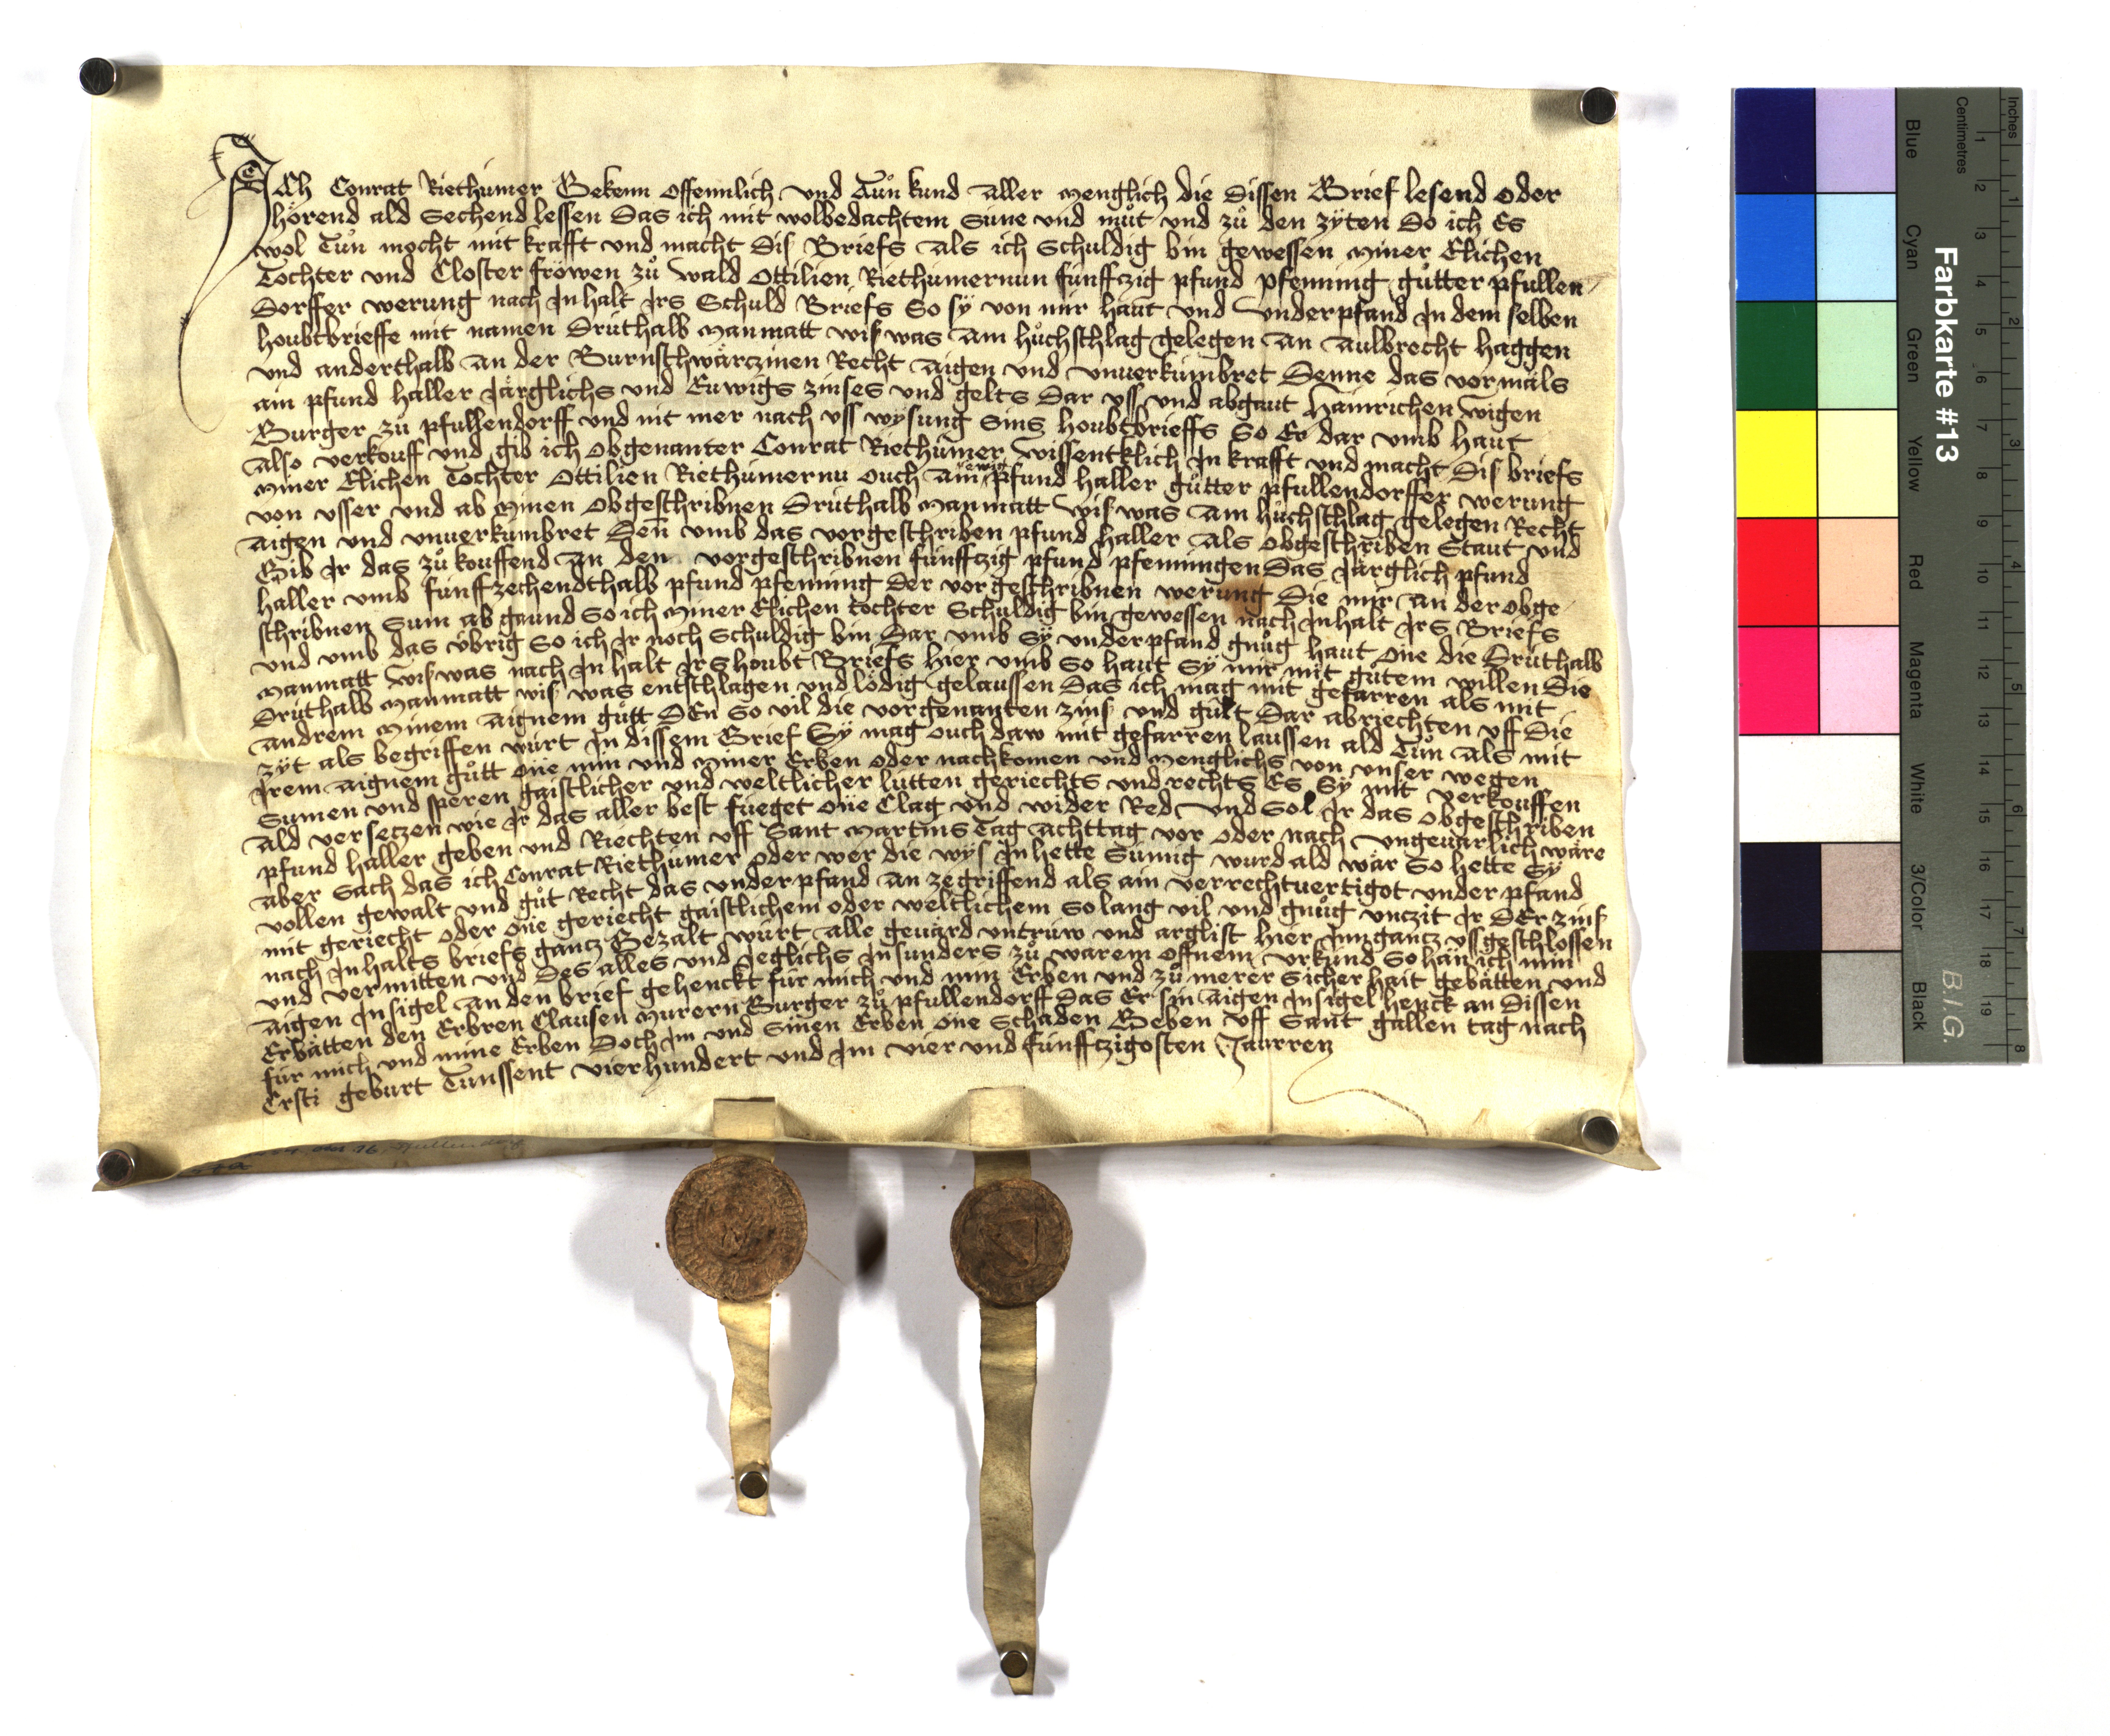 Ich Conrat Riethaimer Bekenn offennlich und Tuͦn kund aller menglich die dissen Brief lesend oder
hoͤrend ald sechend lessen das ich mit wolbedachtem sinne und muͦt und zuͦ den zÿten do ich Es
wol Tuͦn mocht mit krafft und macht dis Briefs als ich schuldig bin gewessen miner Elichen
Tochter und Closter froͤwen zuͦ Wald Ottilien Riethumernun funffzig pfund pfenning guͦtter pfullen
dorffer werung nach Inhalt Irs Schuld Briefs So sÿ von mir haut und underpfand In dem selben
houbtbrieffe mit namen druthalb manmatt wis was am huͦchschlag gelegen an aulbrecht haggen
und anderthalb an der Burnschwaͤrczinen Recht aigen und unuerkumbret denne das vormals
ain pfund haller Jaͤrglichs und Euwigs zinses und gelts dar uss und abgaut Hainrichen Wigen
Burger zuͦ pfullendorff und nit mer nach uss wÿsung sins houbtbrieffs So Er dar umb haut
also verkouff und gib ich obgenanter Conrat Riethumer wissentklich In krafft und macht dis briefs
miner Elichen Tochter Ottilien Riethumernu ouch ain ewig pfund haller guͦtter pfullendorffer werung
von usser und ab minen obgeschribnen druthalb manmatt wis was am huͦchschlag gelegen Recht
aigen und unuerkumbret den umb das vorgeschriben pfund haller als obgeschriben staut und
Gib Ir das zuͦ kouffend an den vorgeschribnen funffzig pfund pfenningen das Jaͤrglich pfund
haller umb funffzechendthalb pfund pfenning der vorgeschribnen werung die mir an der obge
schribnen Sum ab gaund So ich miner Elichen tochter Schuldig bin gewessen nach Inhalt Irs Briefs
und umb das übrig so ich Ir noch schuldig bin dar umb Sÿ underpfand gnuͦg haut one die druthalb
manmatt wis was nach In halt Irs houbt Briefs hier umb So haut Sÿ mir mit guͦtem willen die
druthalb manmatt wis was entschlagen und lödig gelaussen das ich mag mit gefarren als mit
andrem minem aignem guͦtt den So vil die vorgenanten zins und gult dar abriechten uff die
zÿt als begriffen wurt In dissem Brief Sÿ mag ouch daw mit gefarren laussen ald Tuͦn als mit
Irem aignem guͦtt one min und miner Erben oder nachkomen und menglichs von unser wegen
Sumen und sperren gaistlicher und weltlicher lutten geriechts und rechts Es Sÿ mit verkouffen
ald versetzen wie Ir das aller best fueget one Clag und wider Red und Sol Ir das obgeschriben
pfund haller geben und Riechten uff Sant Martins Tag achttag vor oder nach ungeuarlich waͤre
aber Sach das ich Conrat Riethumer oder wer die wÿs Inhette Sumig wurd ald waͤr So hette Sÿ
vollen gewalt und guͦt Recht das underpfand an zegriffend als ain verrechtuertigot underpfand
mit geriecht oder one geriecht gaistlichem oder weltlichem so lang vil und gnuͦg unczit Ir der zins
nach Inhalts briefs gantz Bezalt wurt alle geuard untruw und arglist hier Inn gantz ussgeschlossen
und vermitten und des alles und Jeglichs Insunders zuͦ warem offnem urkund So han ich min
aigen Insigel an den brief gehenckt fur mich und min Erben und zuͦ merer sicher hait gebaͤtten und
Erbaͤtten den Erbren Clausen Murern Burger zuͦ pfullendorff das Er sin aigen Insigel henck an dissen
fur mich und mine Erben doch Im und sinen Erben one schaden Geben uff Sant gallen tag nach
Cristi geburt Tunssent vierhundert und Im vier und funffzigosten Jaurren
Farbkarte #13
Inches
Centimetres
Blue Cyan Green Yellow Red Magenta White 3/Color Black
B.I.G.